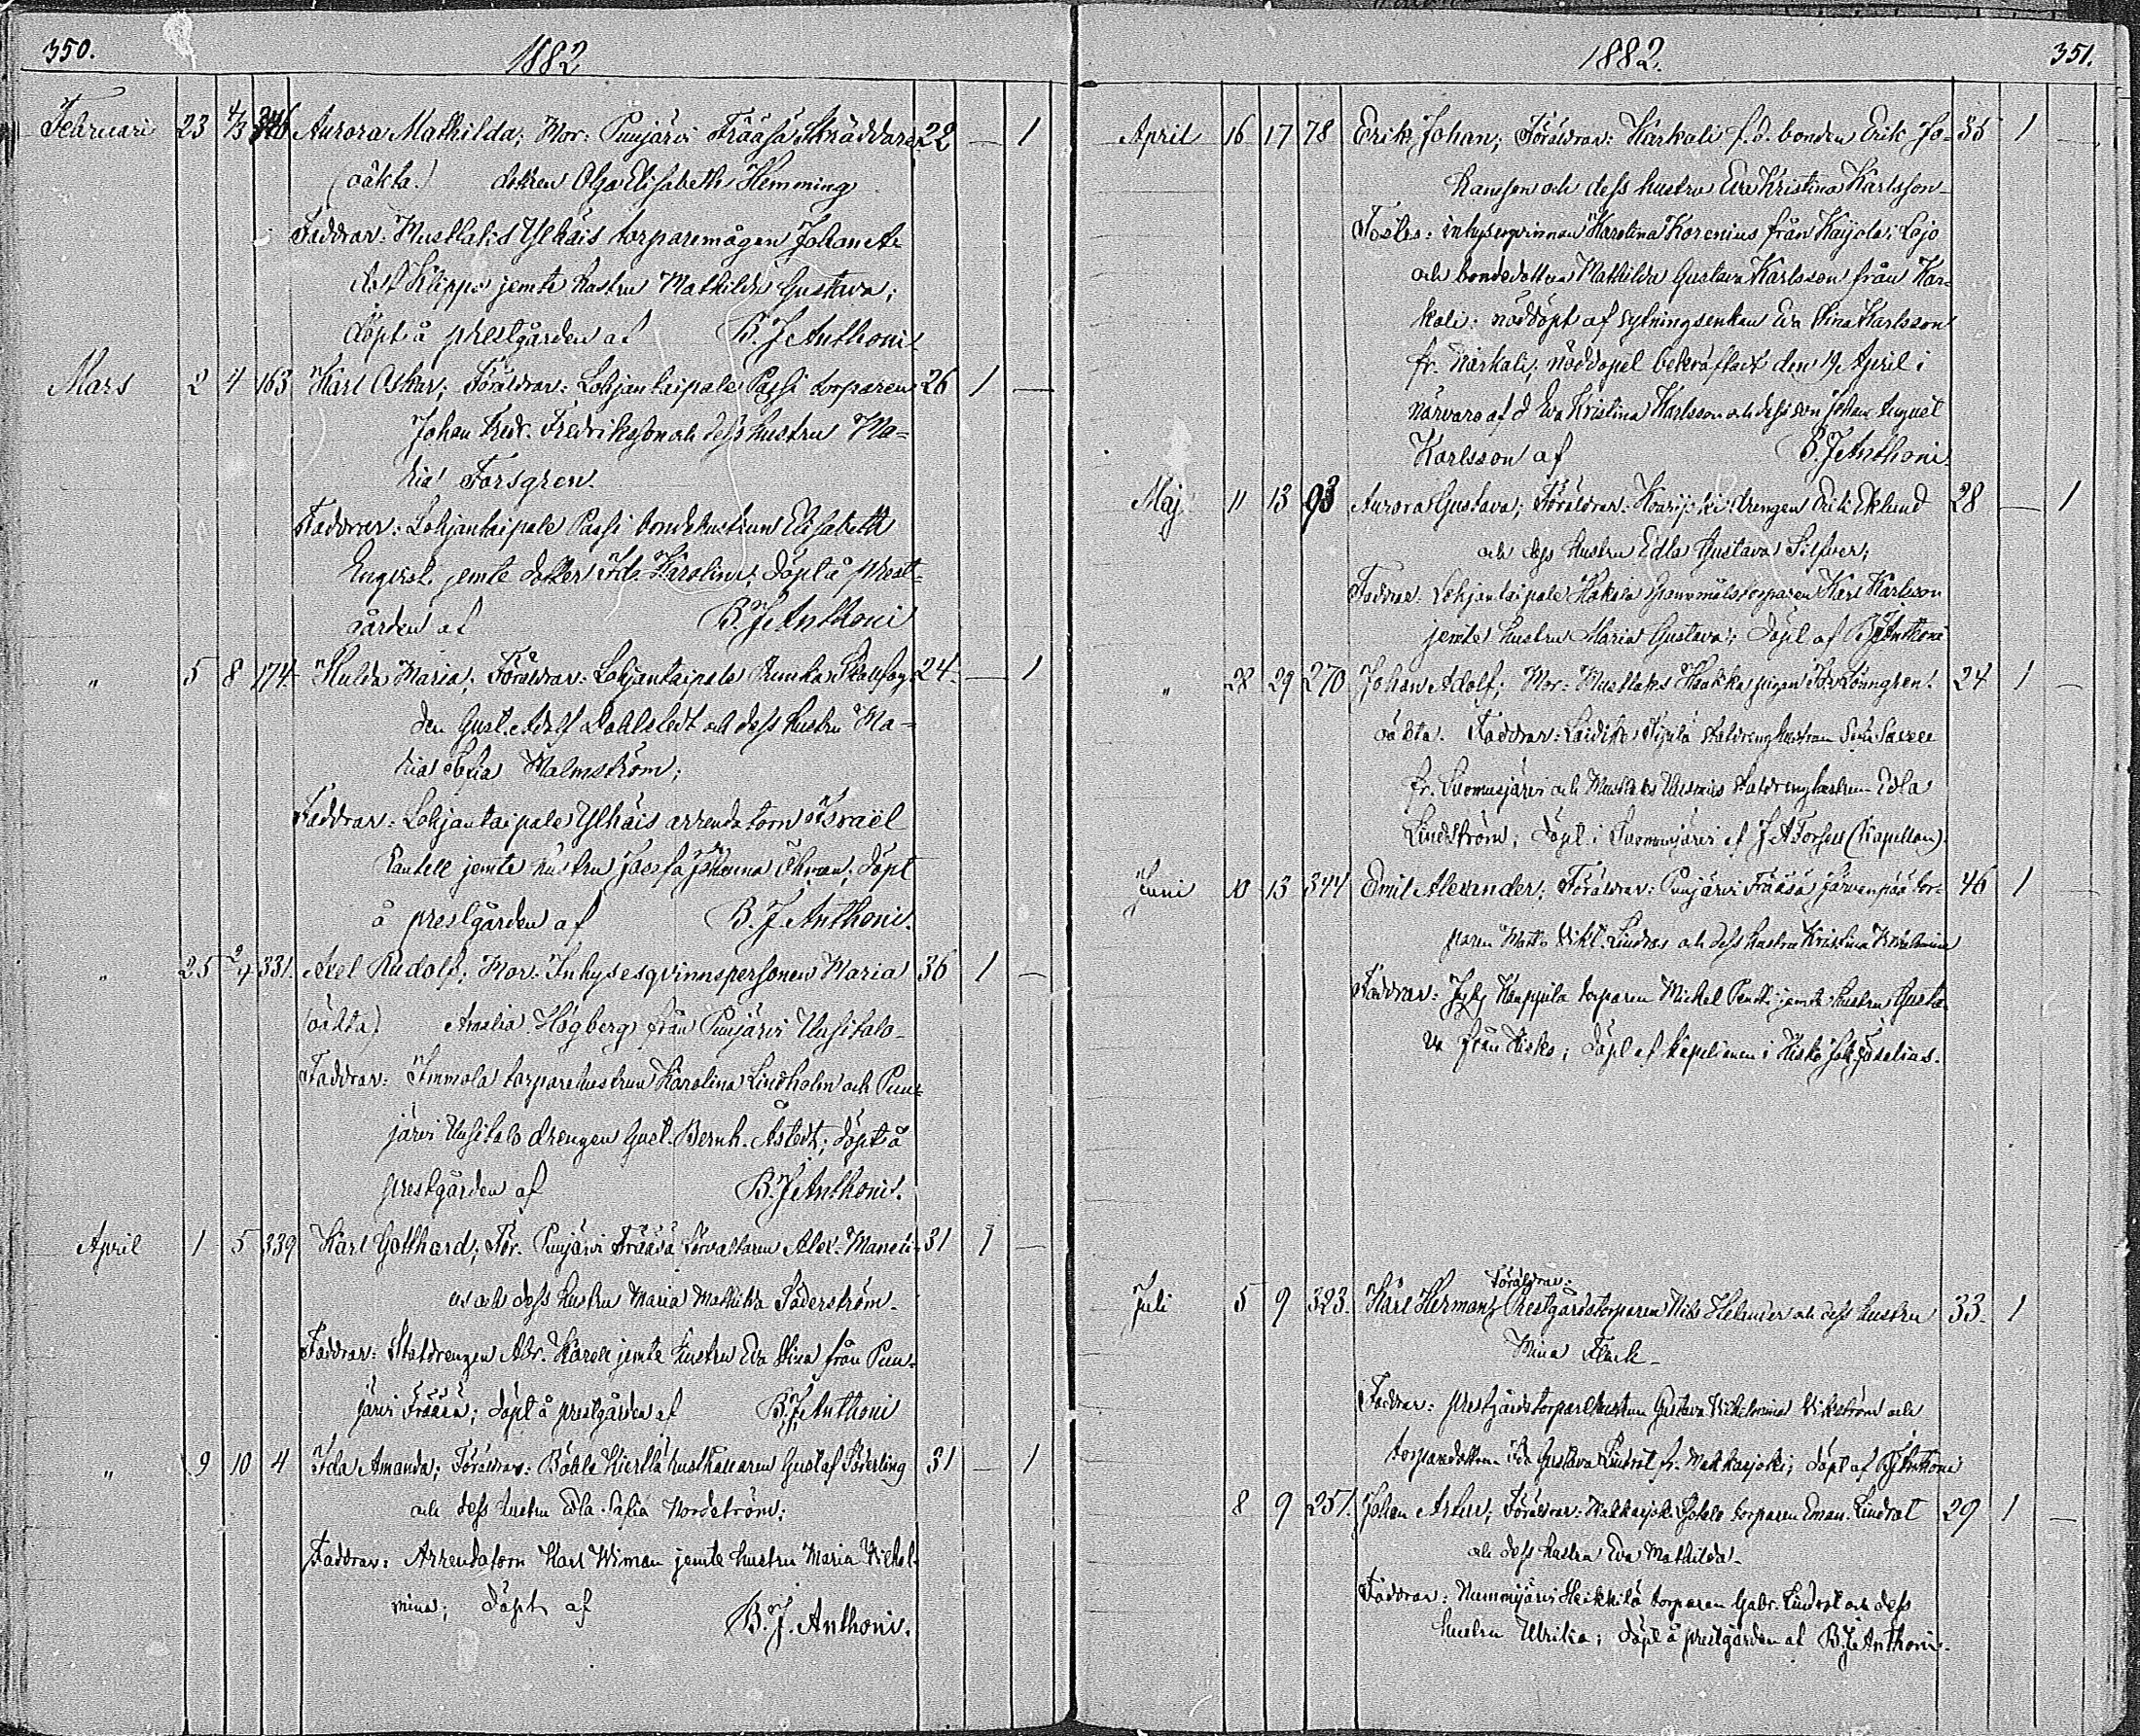 350. 1882
Februari 23 4/3 346 Aurora Mathilda; Mor: Puujärvi Frääsä Skräddare- 22 — 1
(oäkta) dottren Olga Elisabeth Hemming
Faddrar: Mustlaks Ylhäis torparemågen Johan A-
dolf Klippe jemte hustru Mathilda Gustava;
döpt å prestgården af B. J. Anthoni.
Mars 2 4 163 Karl Oskar; Föräldrar: Lohjantaipale Passi torparen 26 1 —
Johan Fredr. Fredriksson och dess hustru Ma-
ria Forsgren.
Faddrar: Lohjantaipale Passi bondehustrun Elisabeth
Enqvist jemte dotter Ida Karolina; döpt å prest-
gården af B. J. Anthoni
" 5 8 174 Hulda Maria; Föräldrar: Lohjantaipale Stallfog- 24 — 1
den Gust. Adolf Dahlstedt och dess hustru Ma-
ria Sofia Malmström;
Faddrar: Lohjantaipale Ylhäis arrendatorn Israël
jemte hustru Josefa Johanna Öhman; döpt
å prestgården af B. J. Anthoni.
" 25 2/4 331. Axel Rudolf; Mor: Inhysesqvinnspersonen Maria 36 1 —
(oäkta) Amalia Högberg från Puujärvi Uusitalo-
Faddrar: Immola torparehustrun Karolina Lindholm och Puu-
järvi Uusitalo drengen Gust. Bernh. Åstedt; döpt å
prestgården af B. J. Anthoni.
April 1 5 339 Karl Gotthard; För. Puujärvi Frääsä förvaltaren Alex. 31 1 —
us och dess hustru Maria Mathilda Söderström.
Faddrar: Statdrengen jemte hustru Eva Stina från Puu-
järvi Frääsä; döpt å prestgården af B. J. Anthoni
" 9 10 4 Ida Amanda; Föräldrar: Kierlä husbonden Gustaf Söderling 31 — 1
och dess hustru Edla Sofia Nordström;
Faddrar: Arrendatorn Karl Wiman jemte hustru Maria Vilhel-
mina; döpt af B. J. Anthoni.
1882. 351.
April 16 17 78 Erik Johan; Föräldrar: Karkali f.d. bonden Erik Jo- 35 1 —
hansson och dess hustru Eva Kristina Karlsson-
inhysesqvinnan Karolina Korenius från i Lojo
och bondedottren Mathilda Gustava Karlsson från Kar-
kali; nöddöpt af sytningsenkan Eva Stina Karlsson
fr. Karkali; nöddopet bekräftadt den 19 April i
närvaro af d Eva Kristina Karlsson och dess son Johan August
Karlsson af B. J. Anthoni.
Maj 11 13 93 Aurora Gustava; Föräldrar: drengen Erik Eklund 28 — 1
och dess hustru Edla Gustava Silfver;
Faddrar: Lohjantaipale Hakala Karl Karlsson
jemte hustru Maria Gustava; döpt af B. J. Anthoni
" 28 29 270 Johan Adolf; Mor: Mustlaks Haakka pigan Ida Lönngren. 24 1 —
oäkta. Faddrar: statdrenghustrun
fr. Suomusjärvi och Mustlaks statdrenghustrun Edla
Lindström; döpt i Suomusjärvi af J. A. Forssell (Kapellan)
Juni 10 13 344 Emil Alexander; Föräldrar: Puujärvi Frääsä Järvenpää tor- 46 1 —
paren Matts Vikt. Lindros och dess hustru Kristina Wilhelmina
Faddrar: Kauppila torparen Michel jemte hustru Gusta-
va från Kisko; döpt af kapellanen i Kisko
Föräldrar:
Juli 5 9 323. Karl Herman; Prestgårdstorparen Helander och dess hustru 33. 1
Mina Flack-
Faddrar: prestgårdstorparehustrun Gustava Vilhelmina Vikström och
torparedottren Ida Gustava Lindvist fr. Makkarjoki; döpt af B. J. Anthoni
8 9 251. Johan Artur; Föräldrar: Makkarjoki torparen Eman. 29 1 —
och dess hustru Eva Mathilda-
Faddrar: Nummijärvi Heikkilä torparen Gabr. och dess
hustru Ulrika; döpt å prestgården af B. J. Anthoni.